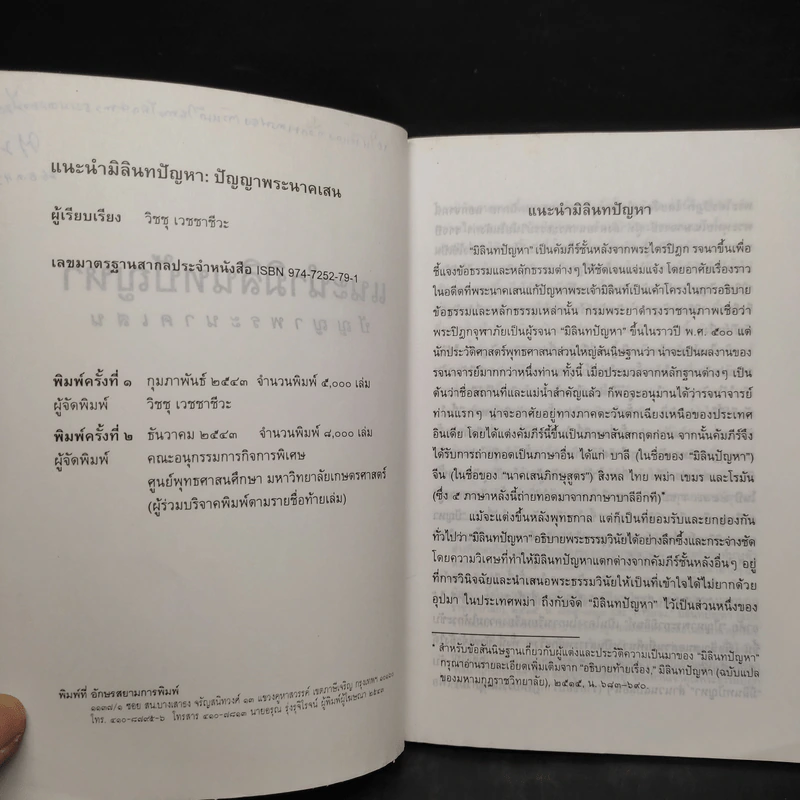 แนะนำมิลินทปัญหา: ปัญญาพระนาคเสน
ผู้เรียบเรียง วิชชุ เวชชาชีวะ
เลขมาตรฐานสากลประจำหนังสือ ISBN 974-7252-79-1
พิมพ์ครั้งที่ ๑ กุมภาพันธ์ ๒๕๔๓ จำนวนพิมพ์ ๕,๐๐๐ เล่ม
ผู้จัดพิมพ์ วิชชุ เวชชาชีวะ
พิมพ์ครั้งที่ ๒ ธันวาคม ๒๕๔๓ จำนวนพิมพ์ ๘,๐๐๐ เล่ม
ผู้จัดพิมพ์ คณะอนุกรรมการกิจการพิเศษ
ศูนย์พุทธศาสนศึกษา มหาวิทยาลัยเกษตรศาสตร์
(ผู้ร่วมบริจาคพิมพ์ตามรายชื่อท้ายเล่ม)
พิมพ์ที่ อักษรสยามการพิมพ์
๑๑๓๘/๑ ซอย สน.บางเสาธง จรัญสนิทวงศ์ ๑๓ แขวงคูหาสวรรค์ เขตภาษีเจริญ กรุงเทพฯ
โทร. ๔๑๐-๘๗๙๕-๖ โทรสาร ๔๑๐-๘๘๑๓ นายอรุณ รุ่งรุจิโรจน์ ผู้พิมพ์ผู้โฆษณา ๒๕๔๓
แนะนำมิลินทปัญหา
"มิลินทปัญหา" เป็นคัมภีร์ชั้นหลังจากพระไตรปิฎก รจนาขึ้นเพื่อ
ชี้แจงข้อธรรมและหลักธรรมต่างๆ ให้ชัดเจนแจ่มแจ้ง โดยอาศัยเรื่องราว
ในอดีตที่พระนาคเสนแก้ปัญหาพระเจ้ามิลินท์เป็นเค้าโครงในการอธิบาย
ข้อธรรมและหลักธรรมเหล่านั้น กรมพระยาดำรงราชานุภาพเชื่อว่า
พระปิฎกจุฬาภัยเป็นผู้รจนา "มิลินทปัญหา" ขึ้นในราวปี พ.ศ. ๕๐๐ แต่
นักประวัติศาสตร์พุทธศาสนาส่วนใหญ่สันนิษฐานว่า น่าจะเป็นผลงานของ
รจนาจารย์มากกว่าหนึ่งท่าน ทั้งนี้ เมื่อประมวลจากหลักฐานต่างๆ เป็น
ต้นว่าชื่อสถานที่และแม่น้ำสำคัญแล้ว ก็พอจะอนุมานได้ว่ารจนาจารย์
ท่านแรกๆ น่าจะอาศัยอยู่ทางภาคตะวันตกเฉียงเหนือของประเทศ
อินเดีย โดยได้แต่งคัมภีร์นี้ขึ้นเป็นภาษาสันสกฤตก่อน จากนั้นคัมภีร์จึง
ได้รับการถ่ายทอดเป็นภาษาอื่น ได้แก่ บาลี (ในชื่อของ "มิลินปัญหา")
จีน (ในชื่อของ "นาคเสนภิกษุสูตร") สิงหล ไทย พม่า เขมร และโรมัน
(ซึ่ง ๕ ภาษาหลังนี้ถ่ายทอดมาจากภาษาบาลีอีกที)*
แม้จะแต่งขึ้นหลังพุทธกาล แต่ก็เป็นที่ยอมรับและยกย่องกัน
ทั่วไปว่า "มิลินทปัญหา" อธิบายพระธรรมวินัยได้อย่างลึกซึ้งและกระจ่างชัด
โดยความวิเศษที่ทำให้มิลินทปัญหาแตกต่างจากคัมภีร์ชั้นหลังอื่นๆ อยู่
ที่การวินิจฉัยและนำเสนอพระธรรมวินัยให้เป็นที่เข้าใจได้ไม่ยากด้วย
อุปมา ในประเทศพม่า ถึงกับจัด "มิลินทปัญหา" ไว้เป็นส่วนหนึ่งของ
* สำหรับข้อสันนิษฐานเกี่ยวกับผู้แต่งและประวัติความเป็นมาของ "มิลินทปัญหา"
กรุณาอ่านรายละเอียดเพิ่มเติมจาก "อธิบายท้ายเรื่อง," มิลินทปัญหา (ฉบับแปล
ของมหามกุฏราชวิทยาลัย), ๒๕๑๕, น. ๖๘๓-๖๙๐.